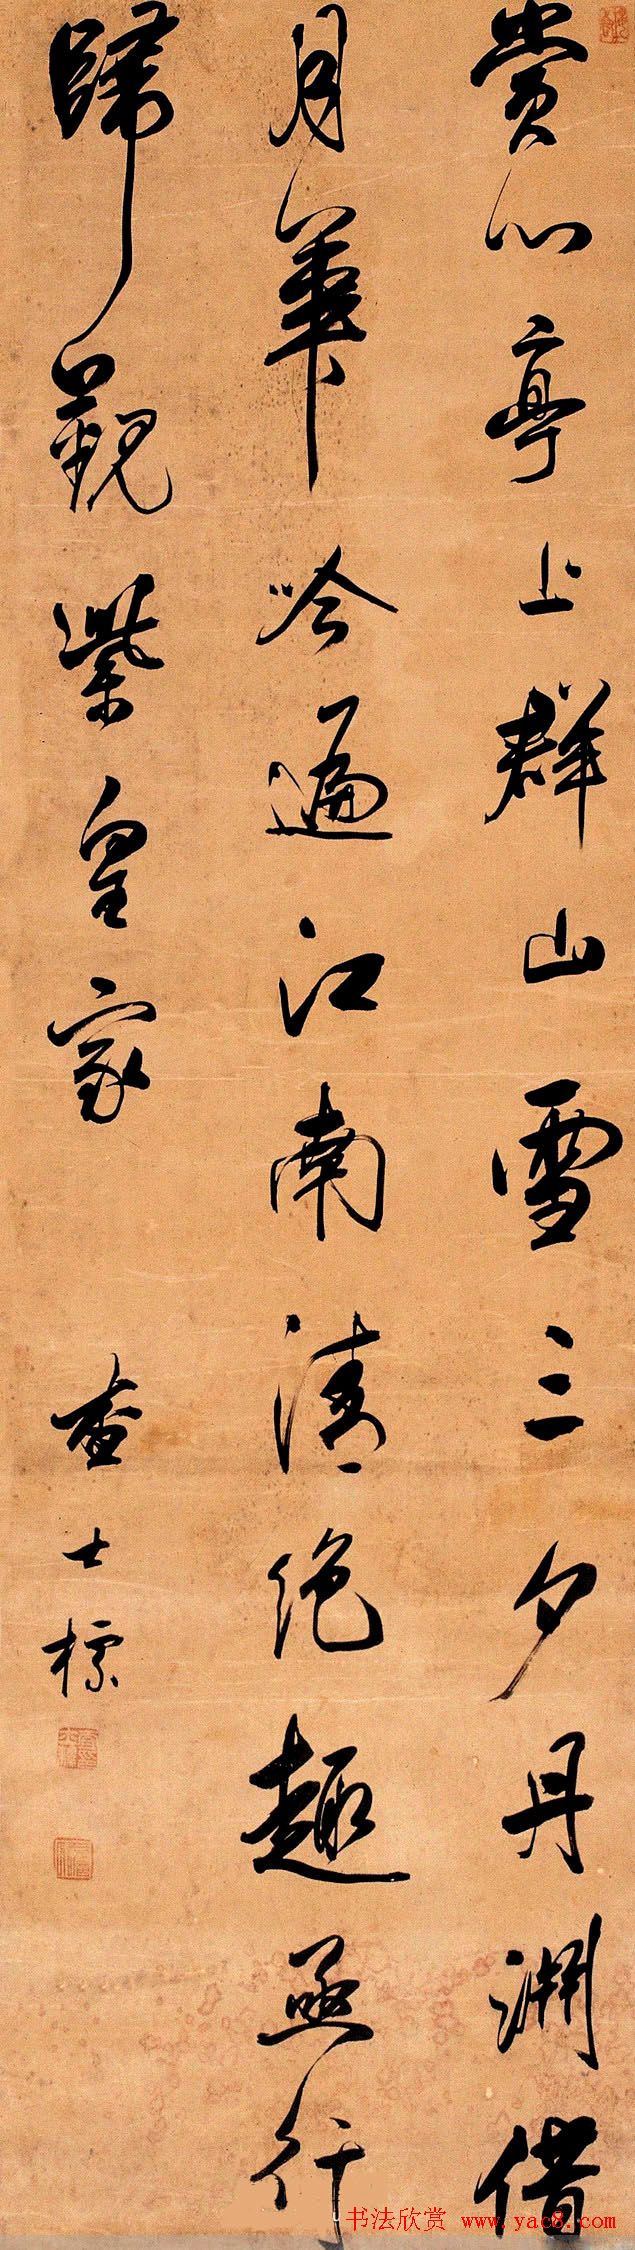 賞心亭上群山雪三夕丹淵借
月華吟遍江南清絕趣亟行
歸覲紫皇家
查士標
书法欣赏 www.yac8.com